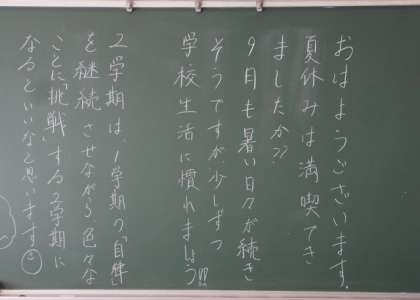 おはようございます.
夏休みは満喫でき
ましたか??
9月も暑い日々が続き
そうですが少しずつ
学校生活に慣れましょう!!!
2学期は、1学期の「自律」
を継続させながら、色々な
ことに「挑戦」する2学期に
なるといいなと思います